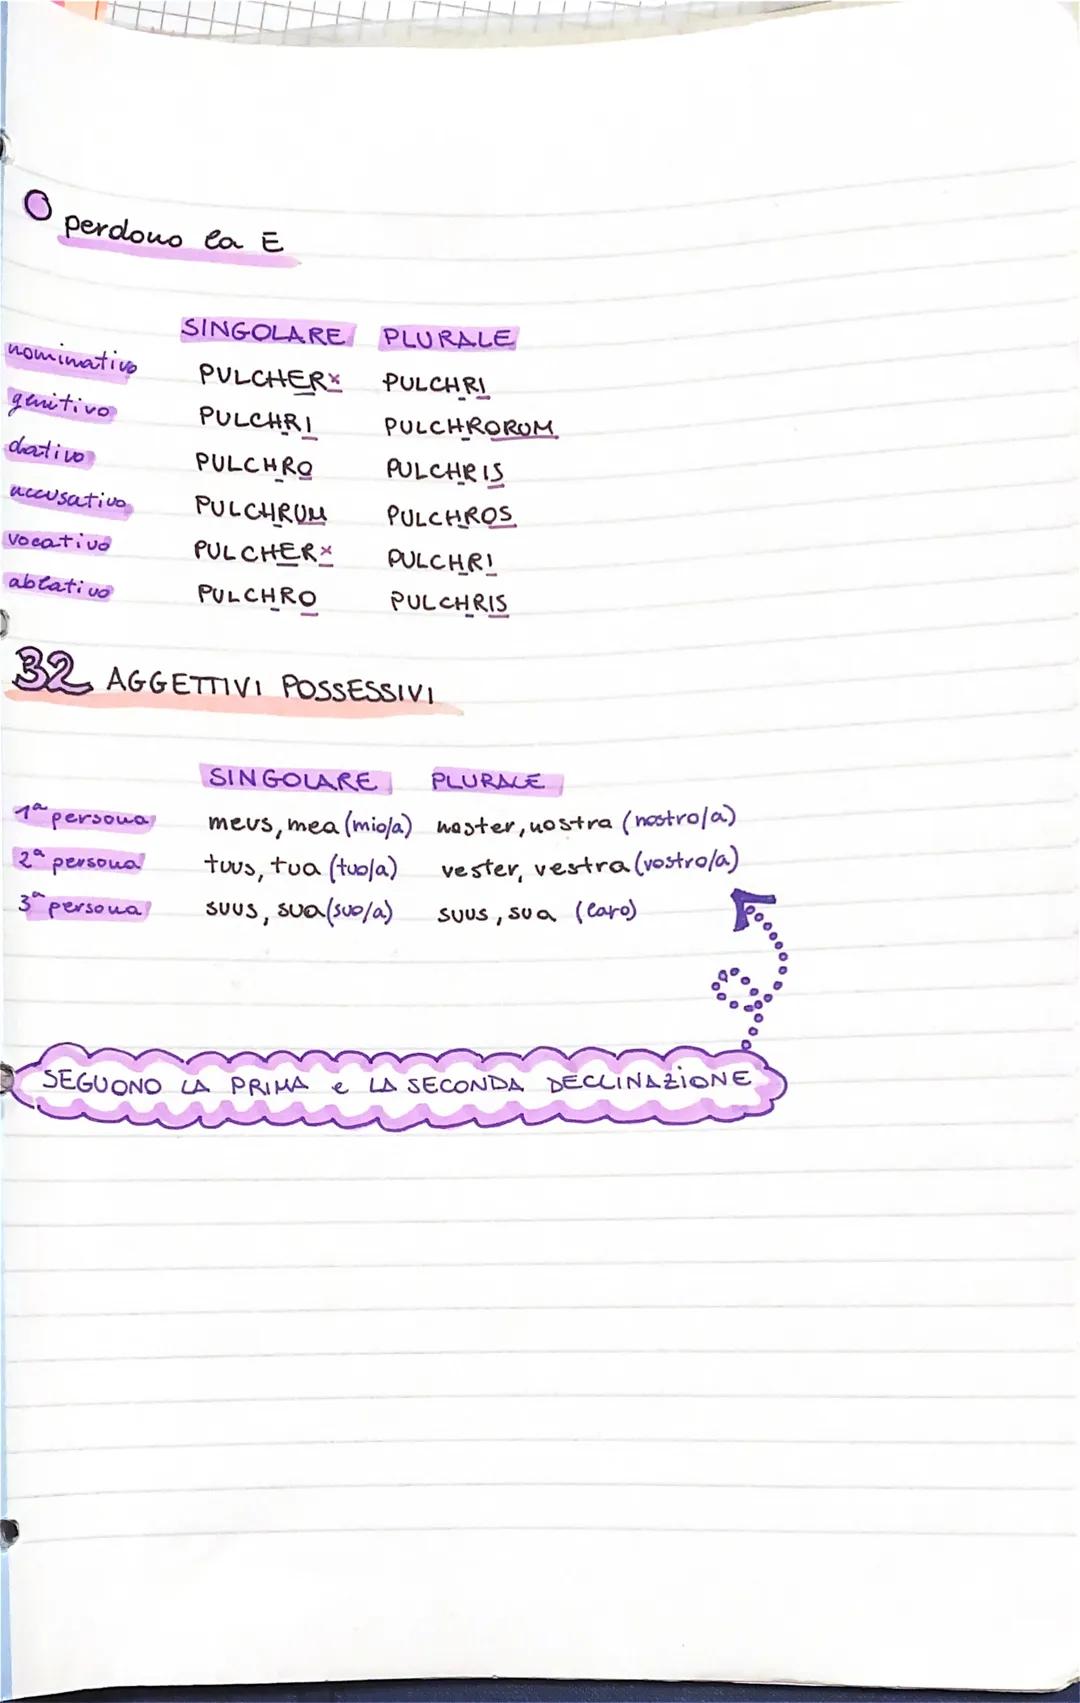 perdono la E
SINGOLARE PLURALE
nominativo PULCHERx PULCHRI
genitivo PULCHRI PULCHRORUM
dativo PULCHRO PULCHRIS
accusativo PULCHRUM PULCHROS
vocativo PULCHERx PULCHRI
ablativo PULCHRO PULCHRIS
32 AGGETTIVI POSSESSIVI
SINGOLARE PLURALE
1ª persona meus, mea (mio/a) noster, nostra (nostro/a)
2ª persona tuus, tua (tuo/a) vester, vestra (vostro/a)
3ª persona suus, sua (suo/a) suus, sua (loro)
SEGUONO LA PRIMA e LA SECONDA DECLINAZIONE